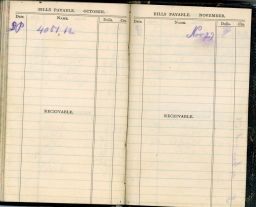 BILLS PAYABLE. OCTOBER.
Date. NAME. Dolls. Cts.
4051,12
RECEIVABLE.
BILLS PAYABLE. NOVEMBER.
Date. NAME. Dolls. Cts.
RECEIVABLE.